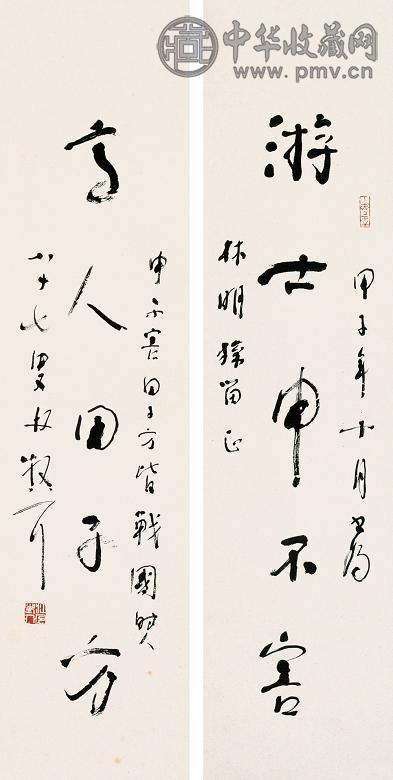 中华收藏网
www.pmv.cn
游士申不害
甲子年十月書為
林明 留正
高人田子方
申不害田子方皆戰國時人
八十七叟林散耳